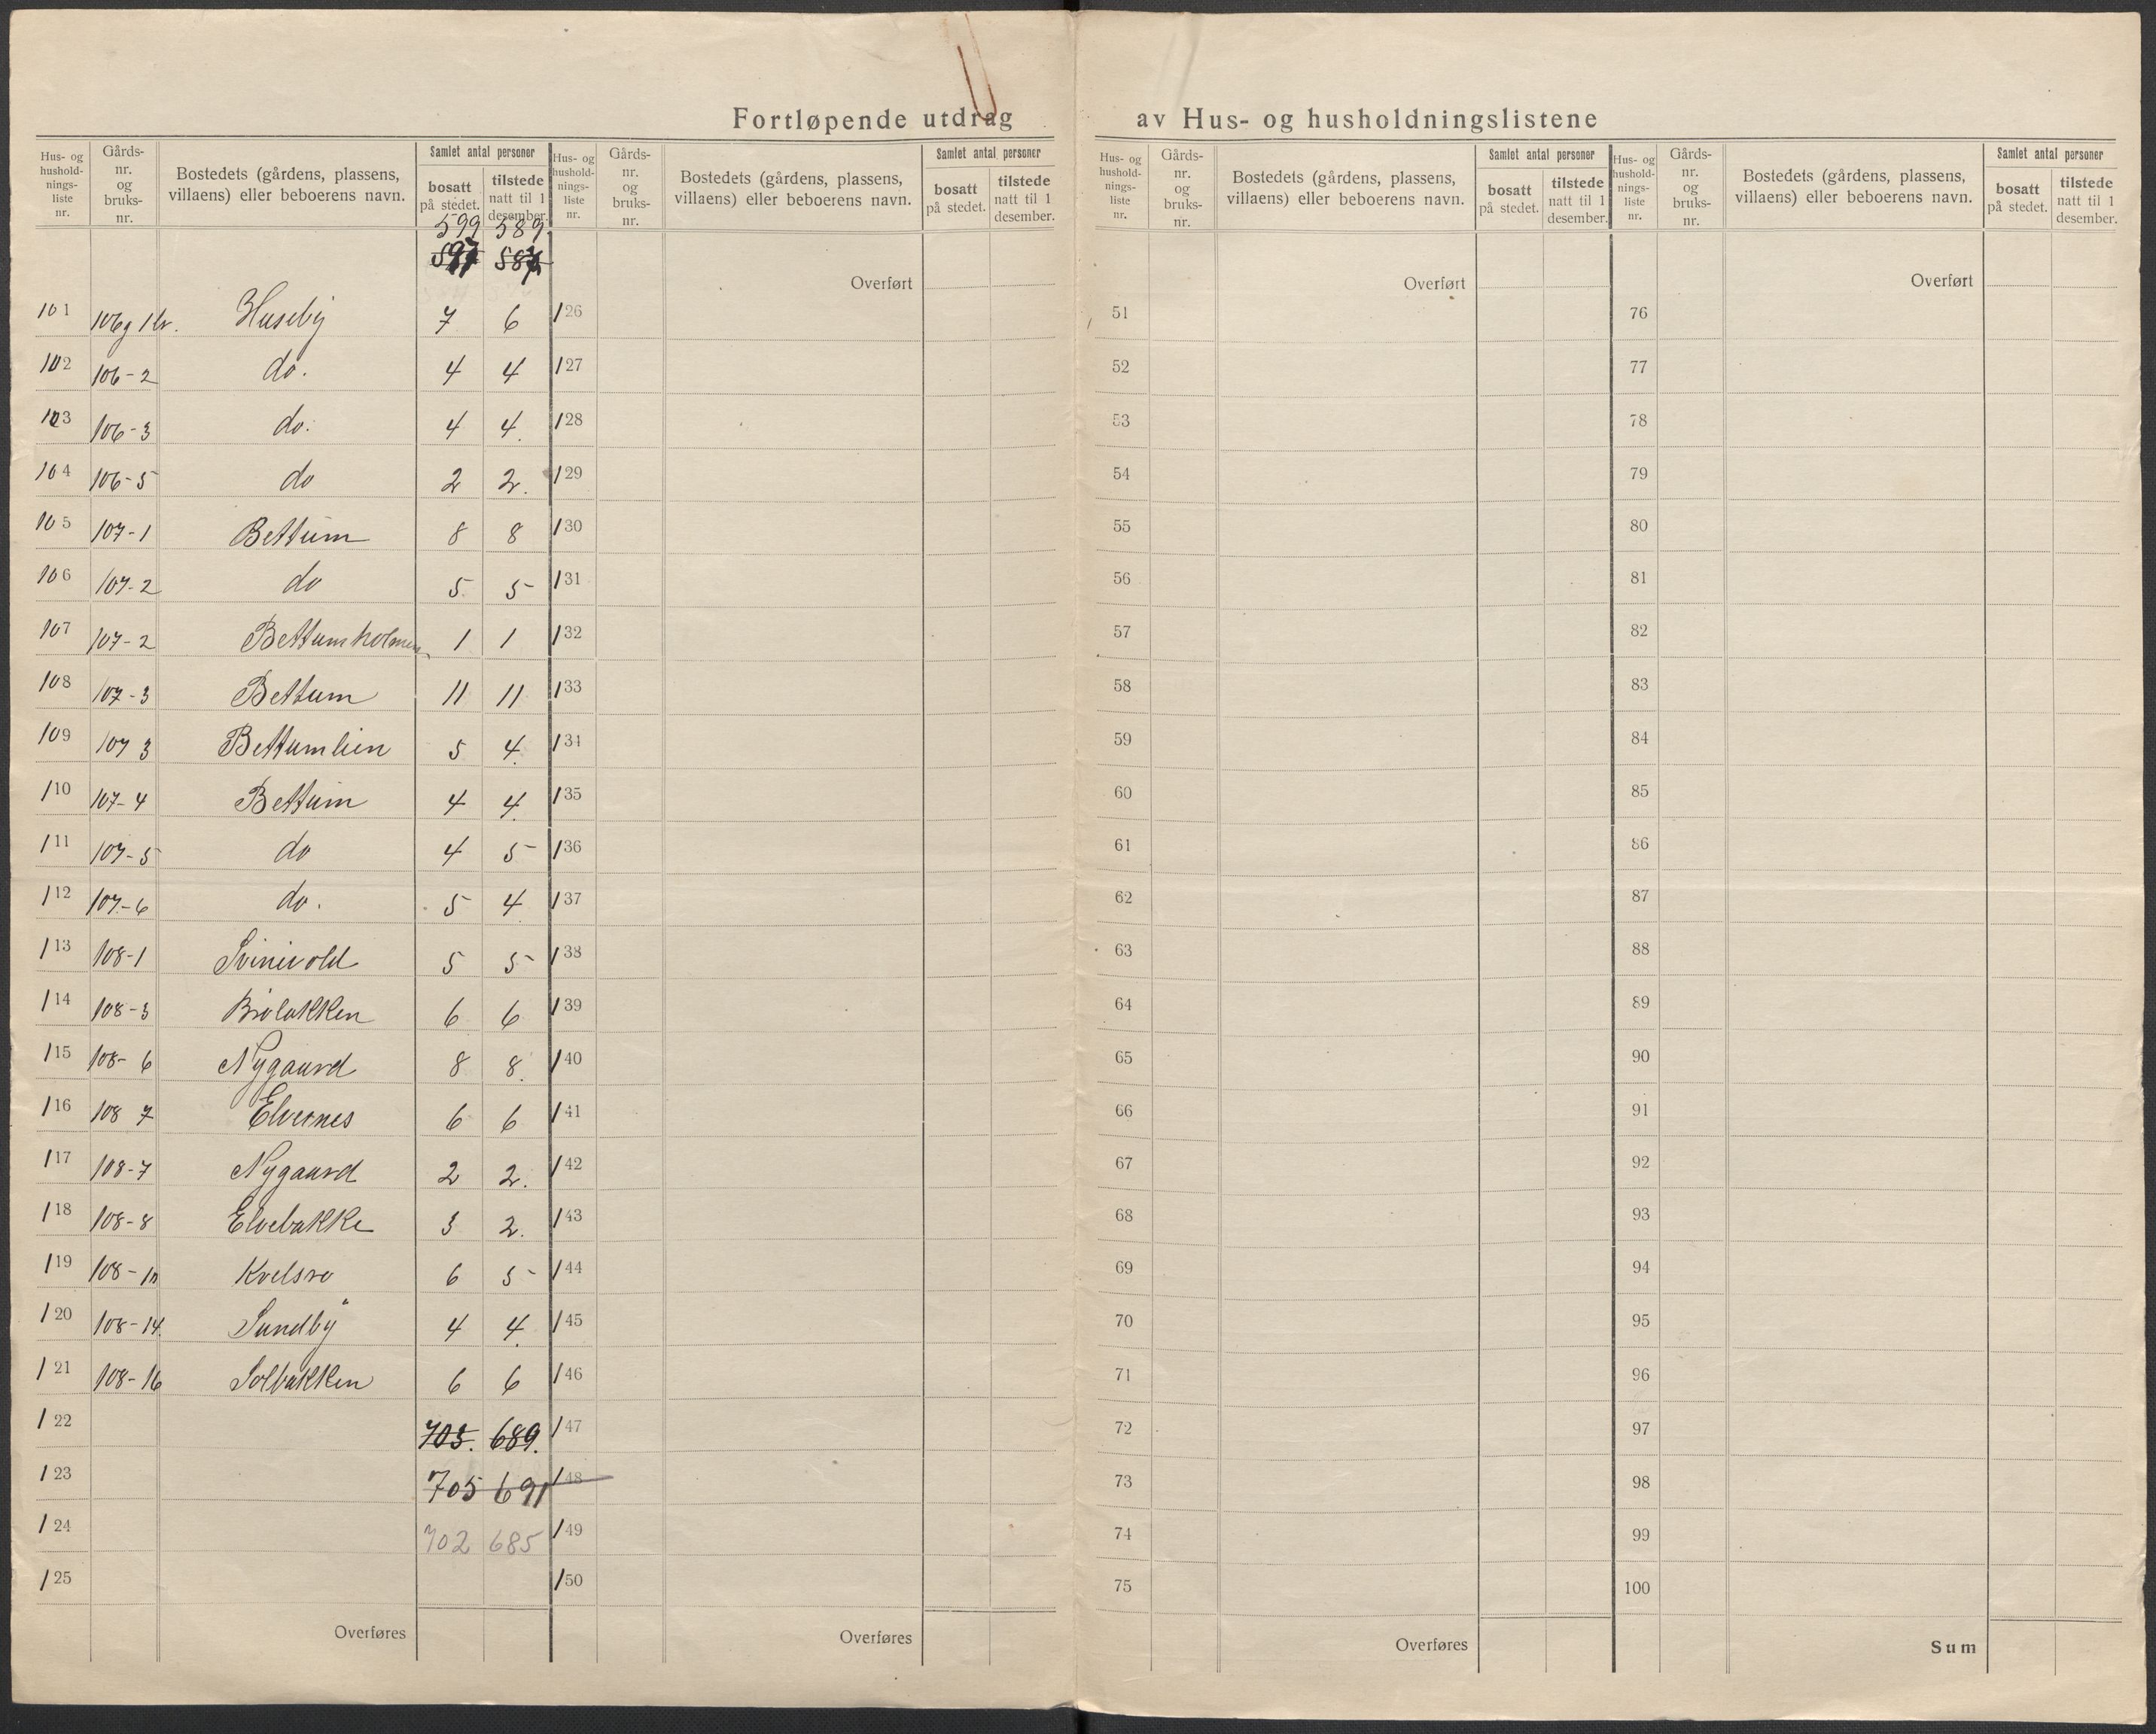 Fortløpende utdrag av Hus- og husholdningslistene
Hus- og hushold-nings-liste nr. Gårds-nr. og bruks-nr. Bostedets (gårdens, plassens, villaens) eller beboerens navn. Samlet antal personer bosatt på stedet. tilstede natt til 1 desember.
Hus- og hushold-nings-liste nr. Gårds-nr. og bruks-nr. Bostedets (gårdens, plassens, villaens) eller beboerens navn. Samlet antal personer bosatt på stedet. tilstede natt til 1 desember.
Hus- og hushold-nings-liste nr. Gårds-nr. og bruks-nr. Bostedets (gårdens, plassens, villaens) eller beboerens navn. Samlet antal personer bosatt på stedet. tilstede natt til 1 desember.
Hus- og hushold-nings-liste nr. Gårds-nr. og bruks-nr. Bostedets (gårdens, plassens, villaens) eller beboerens navn. Samlet antal personer bosatt på stedet. tilstede natt til 1 desember.
599 589
Overført Overført Overført
101 106g 1br. Huseby 7 6 126 51 76
102 106-2 do. 4 4 127 52 77
103 106-3 do. 4 4. 128 53 78
104 106-5 do 2 2. 129 54 79
105 107-1 Bettum 8 8 130 55 80
106 107-2 do 5 5 131 56 81
107 107-2 Bettumholmen 1 1 132 57 82
108 107-3 Bettum 11 11 133 58 83
109 107 3 Bettumlien 5 4. 134 59 84
110 107-4 Bettum 4 4. 135 60 85
111 107-5 do 4 5 136 61 86
112 107-6 do. 5 4 137 62 87
113 108-1 Svinevold 5 5 138 63 88
114 108-3 6 6 139 64 89
115 108-6 Nygaard 8 8. 140 65 90
116 108 7 Elvenes 6 6 141 66 91
117 108-7 Nygaard 2 2. 142 67 92
118 108-8 Elvebakke 3 2. 143 68 93
119 108-10 6 5 144 69 94
120 108-14 Sundby 4 4. 145 70 95
121 108-16 Solbakken 6 6 146 71 96
122 703. 689. 147 72 97
123 705 691 148 73 98
124 702 685 149 74 99
125 150 75 100
Overføres Overføres Overføres Sum